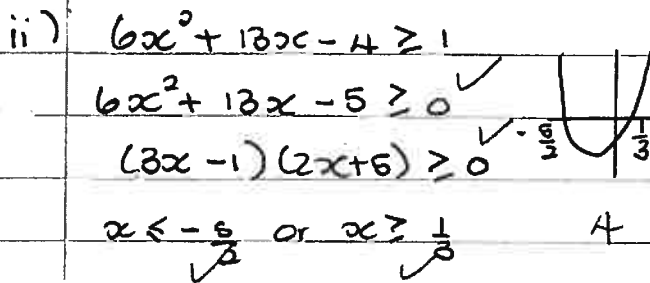 ii) 6x² + 13x - 4 ≥ 1
6x² + 13x - 5 ≥ 0 ✓
(3x - 1)(2x + 5) ≥ 0 ✓
-5/2 1/3
x ≤ -5/2 or x ≥ 1/3 4
✓ ✓